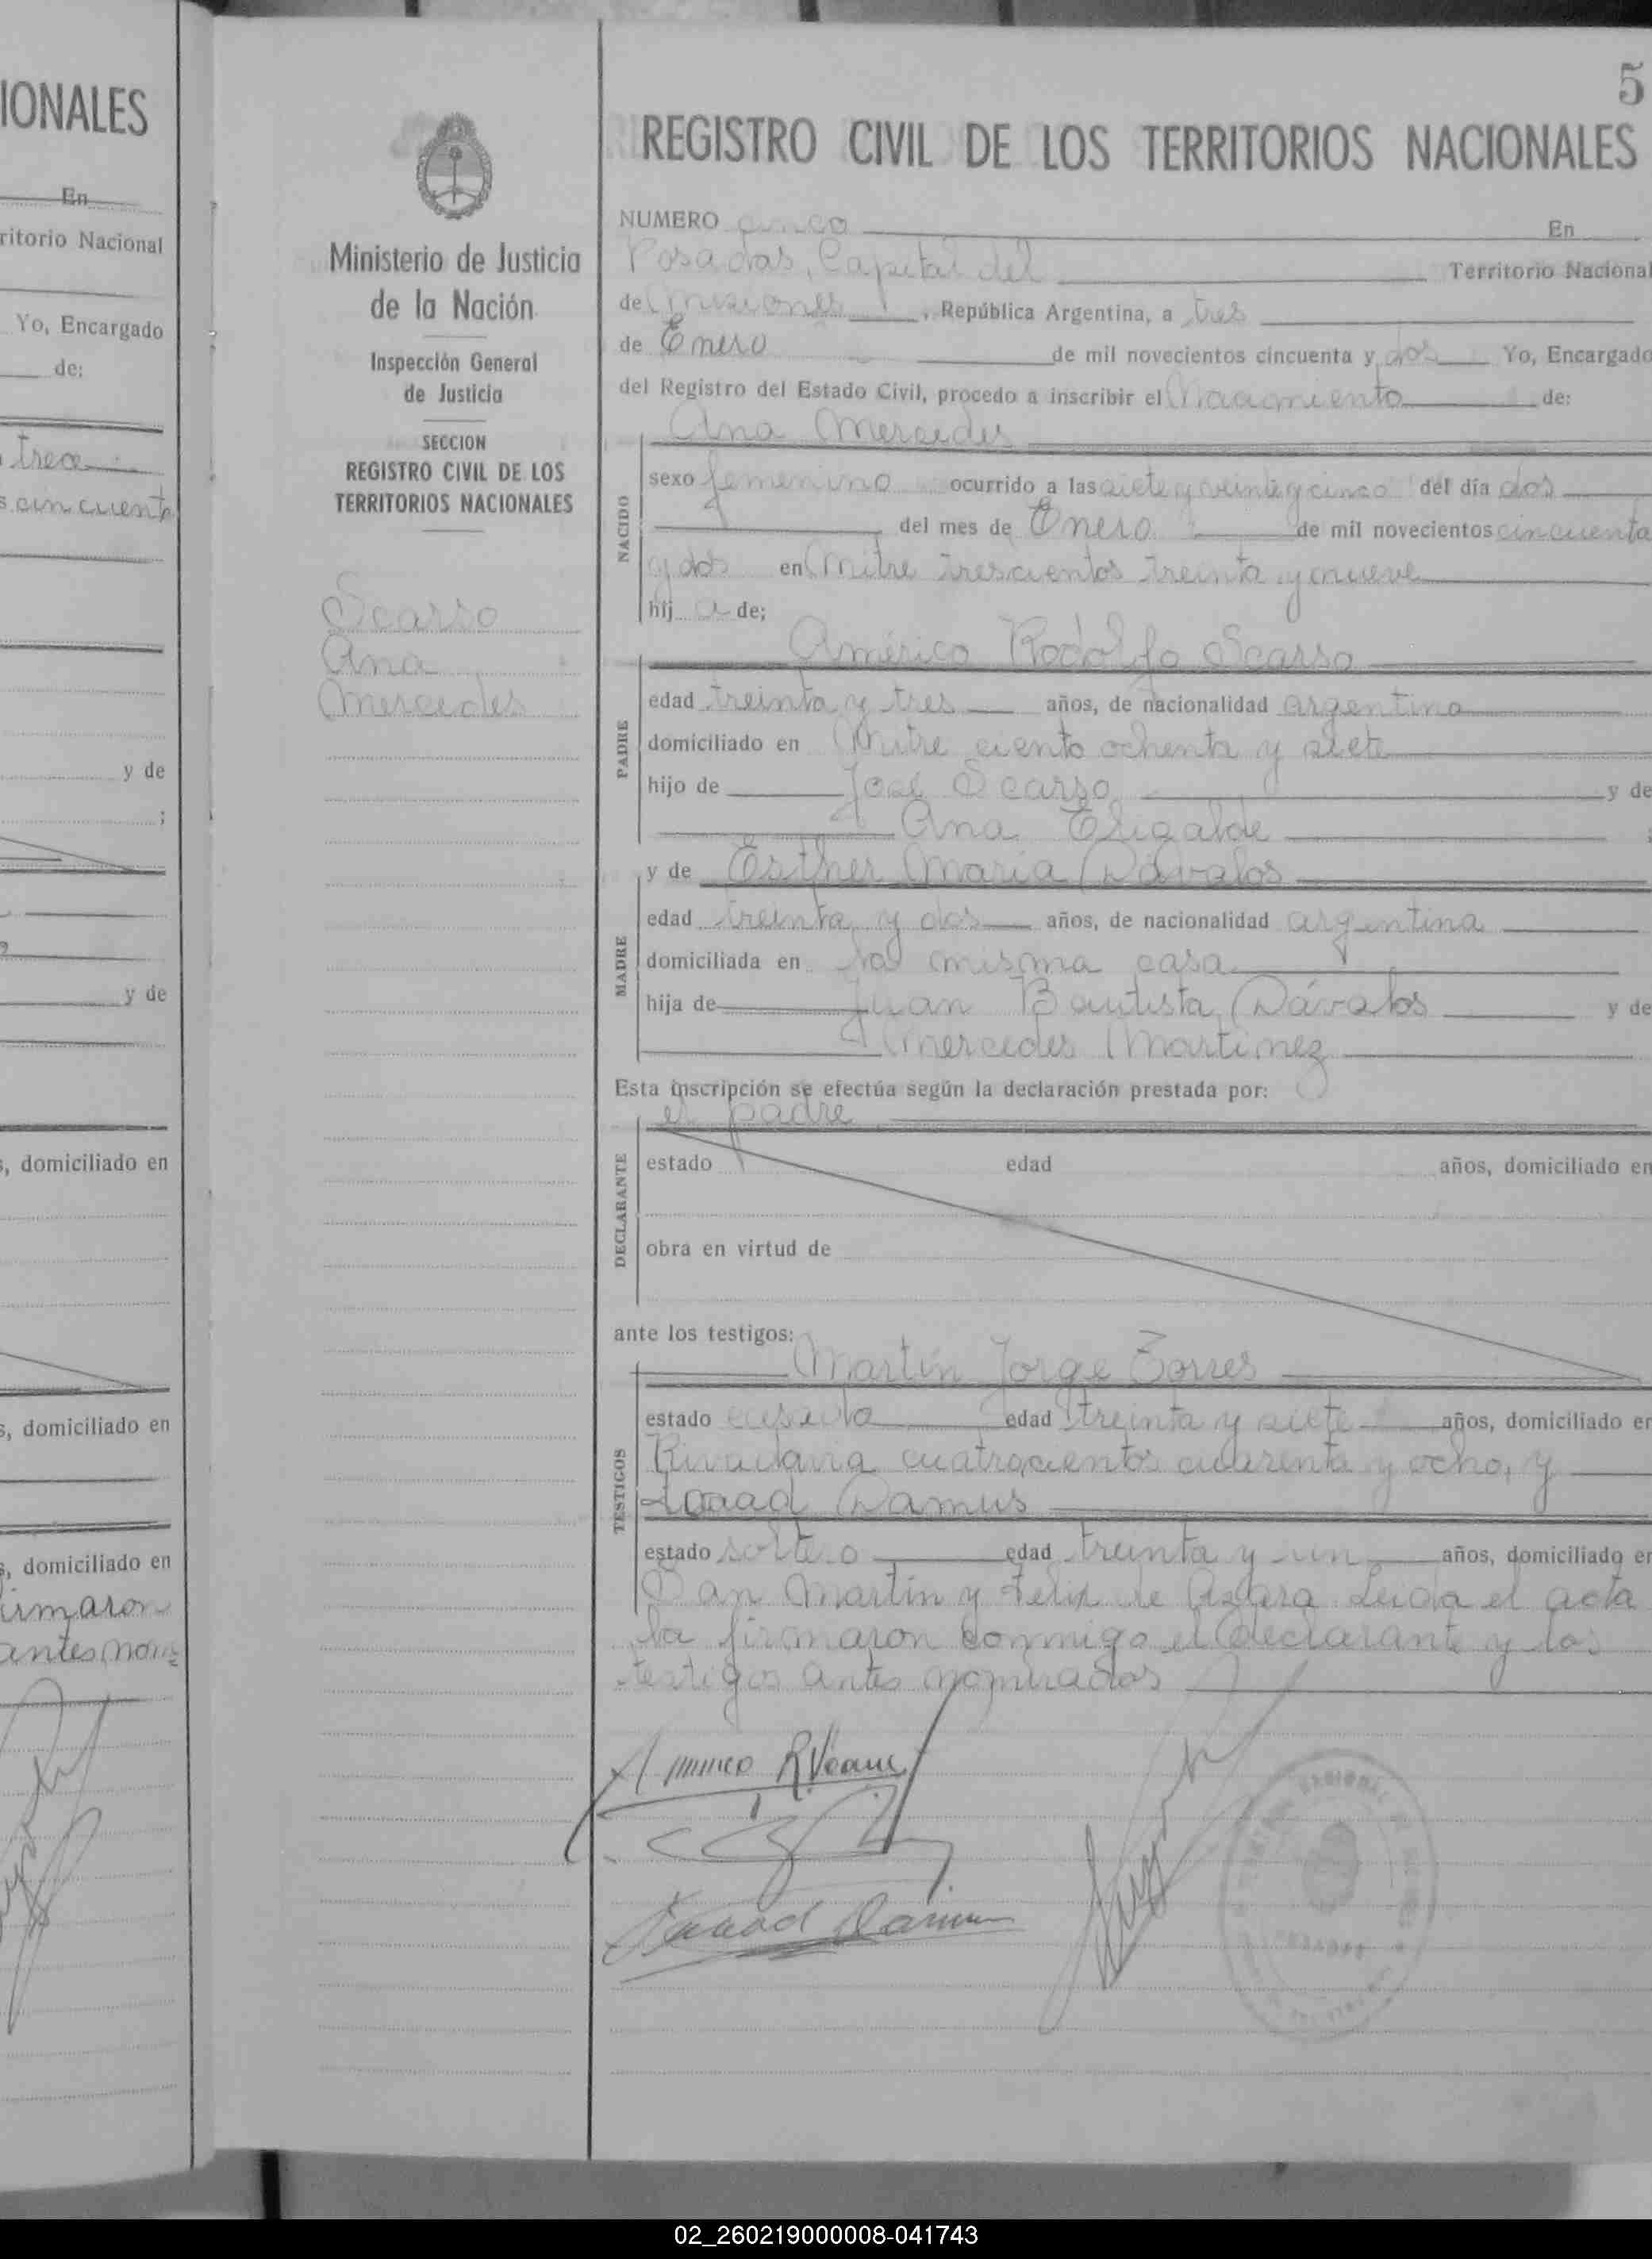 IONALES
En
ritorio Nacional
Yo, Encargado
de:
trece
s cincuenta
y de
;
y de
s, domiciliado en
s, domiciliado en
s, domiciliado en
irmaron
antes nom
5
REGISTRO CIVIL DE LOS TERRITORIOS NACIONALES
Ministerio de Justicia
de la Nación
Inspección General
de Justicia
SECCION
REGISTRO CIVIL DE LOS
TERRITORIOS NACIONALES
Scarso
Ana
Mercedes
NUMERO cinco En
Posadas, Capital del Territorio Nacional
de Misiones, República Argentina, a tres
de Enero de mil novecientos cincuenta y dos Yo, Encargado
del Registro del Estado Civil, procedo a inscribir el Nacimiento de:
Ana Mercedes
NACIDO
sexo femenino ocurrido a las siete y veinte y cinco del día dos
del mes de Enero de mil novecientos cincuenta
y dos en Mitre trescientos treinta y nueve
hij a de;
Américo Rodolfo Scarso
PADRE
edad treinta y tres años, de nacionalidad argentina
domiciliado en Mitre ciento ochenta y siete
hijo de José Scarso y de
Ana Eligalde ;
y de Esther María Dávalos
MADRE
edad treinta y dos años, de nacionalidad argentina
domiciliada en la misma casa
hija de Juan Bautista Dávalos y de
Mercedes Martinez
Esta inscripción se efectúa según la declaración prestada por:
el padre
DECLARANTE
estado edad años, domiciliado en
obra en virtud de
ante los testigos:
Martín Jorge Torres
TESTIGOS
estado casado edad treinta y siete años, domiciliado en
Rivadavia cuatrocientos cuarenta y ocho, y
Damus
estado soltero edad treinta y un años, domiciliado en
San Martín y Felix de Azara Leida el acta
la firmaron conmigo el declarante y los
testigos antes nombrados
02_260219000008-041743